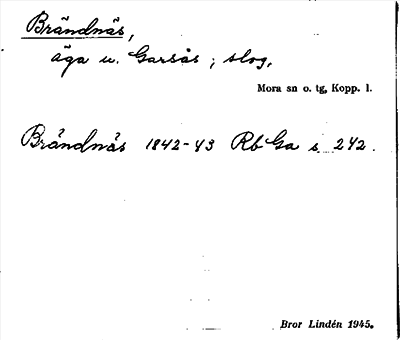 Brändnäs,
äga u. Garsås; skog.
Mora sn o. tg, Kopp. l.
Brändnäs 1842-43 Rb Ga s 242.
Bror Lindén 1945.